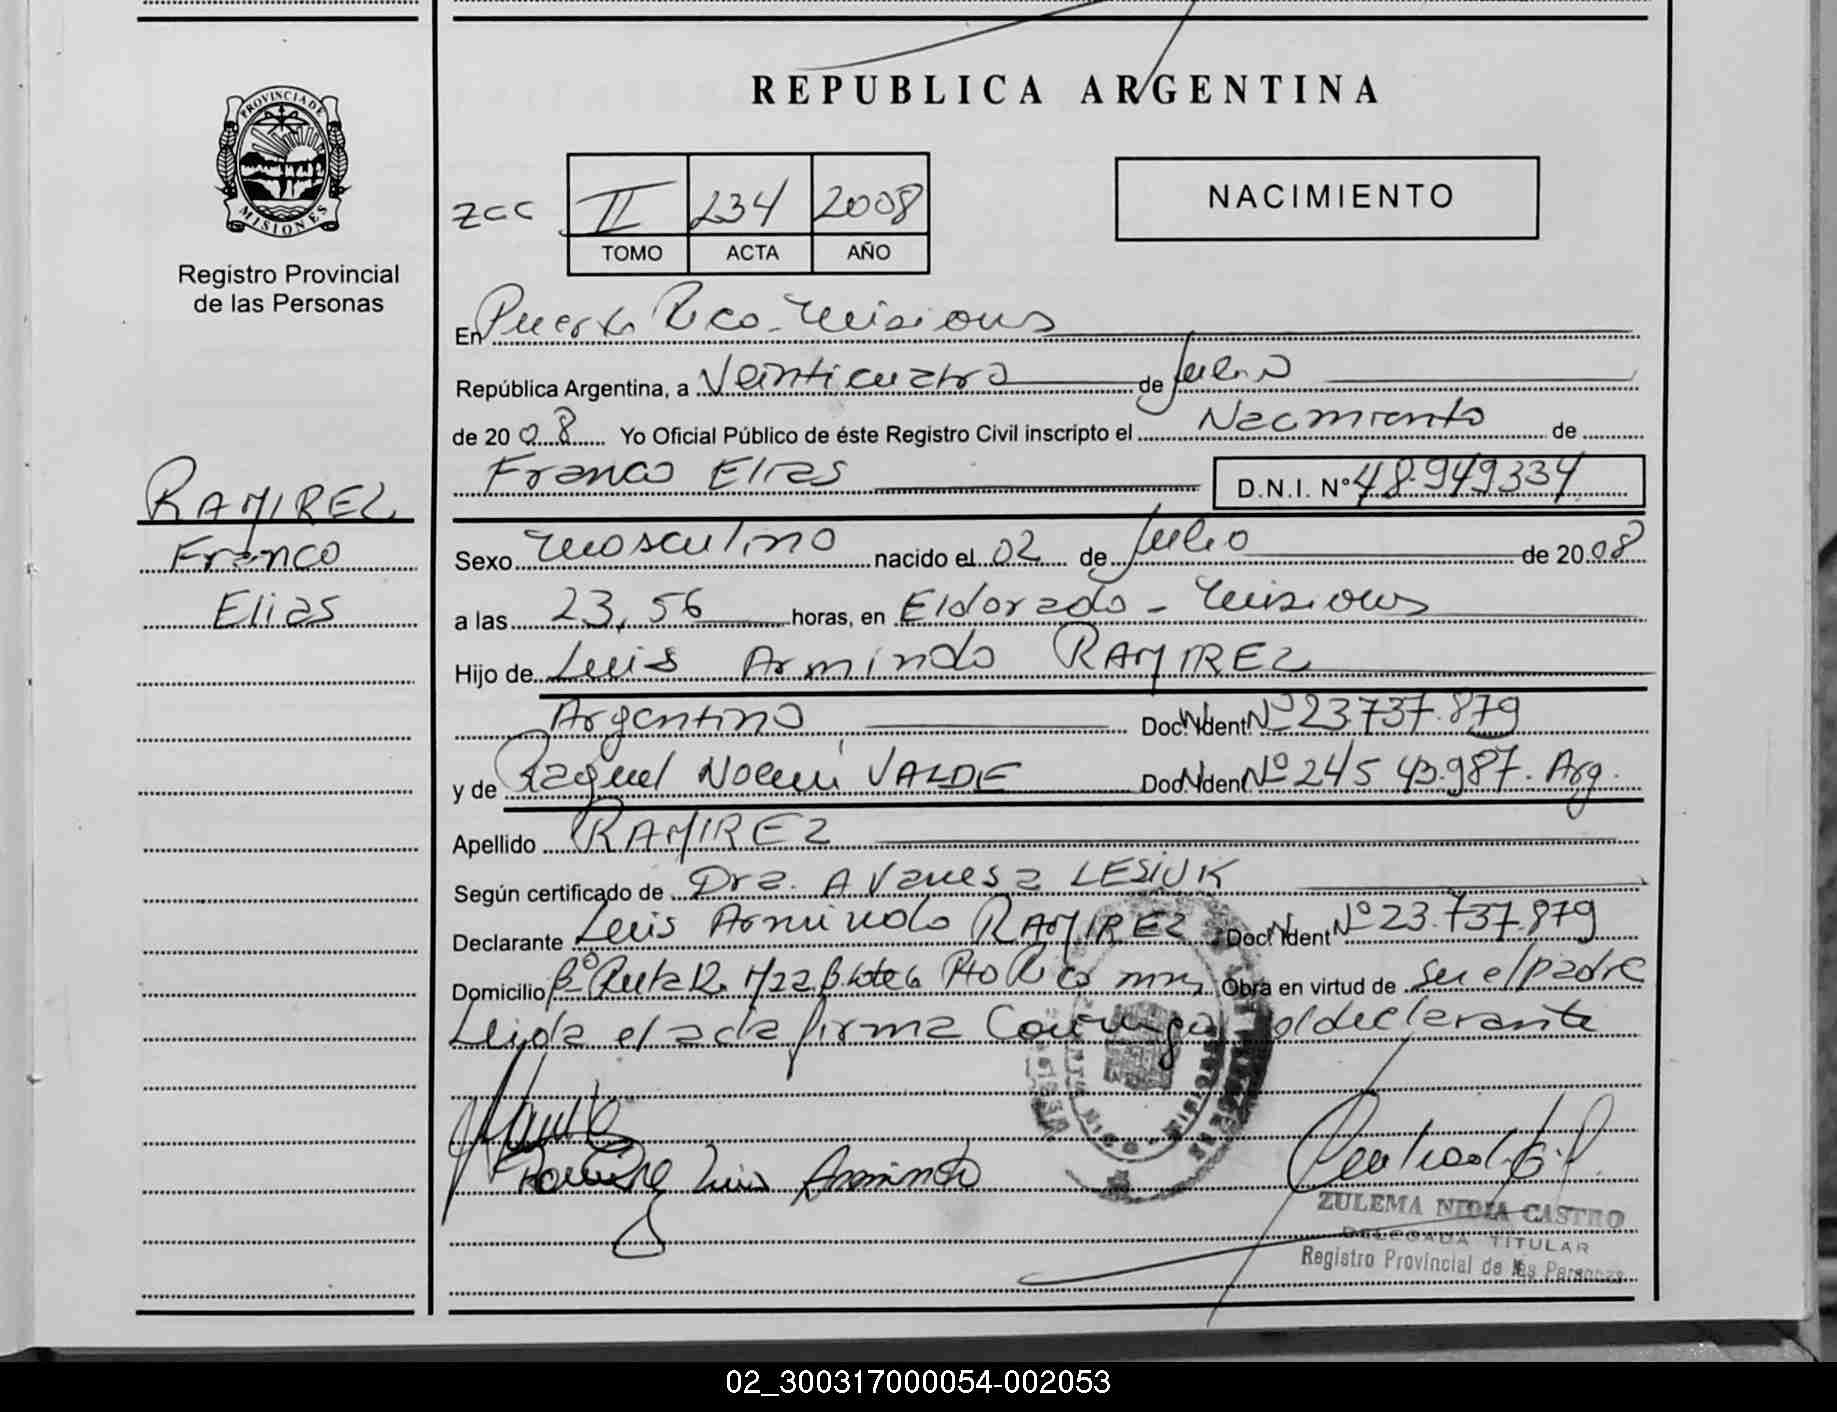 REPUBLICA ARGENTINA
PROVINCIA DE
MISIONES
Registro Provincial
de las Personas
zcc II 234 2008
TOMO ACTA AÑO
NACIMIENTO
En Puerto Rico - Misiones
República Argentina, a Veinticuatro de Julio
de 20 08 Yo Oficial Público de éste Registro Civil inscripto el Nacimiento de
Franco Elias D.N.I. Nº 48.949334
RAMIREZ
Franco
Elias
Sexo masculino nacido el 02 de Julio de 20 08
a las 23,56 horas, en Eldorado - Misiones
Hijo de Luis Armindo RAMIREZ
Argentino Doc. Ident Nº 23.737.879
y de Raquel Noemí VALDE Doc. Ident Nº 24543.987. Arg.
Apellido RAMIREZ
Según certificado de Dra. A Vanesa LESIUK
Declarante Luis Armindo RAMIREZ Doc. Ident Nº 23.737.879
Domicilio Bº Ruta 12 Lote 6 Pto Rico mns Obra en virtud de ser el padre
Leida el acta firma Conmigo el declarante
Ramirez Luis Armindo
ZULEMA NIDIA CASTRO
DELEGADA TITULAR
Registro Provincial de las Personas
02_300317000054-002053